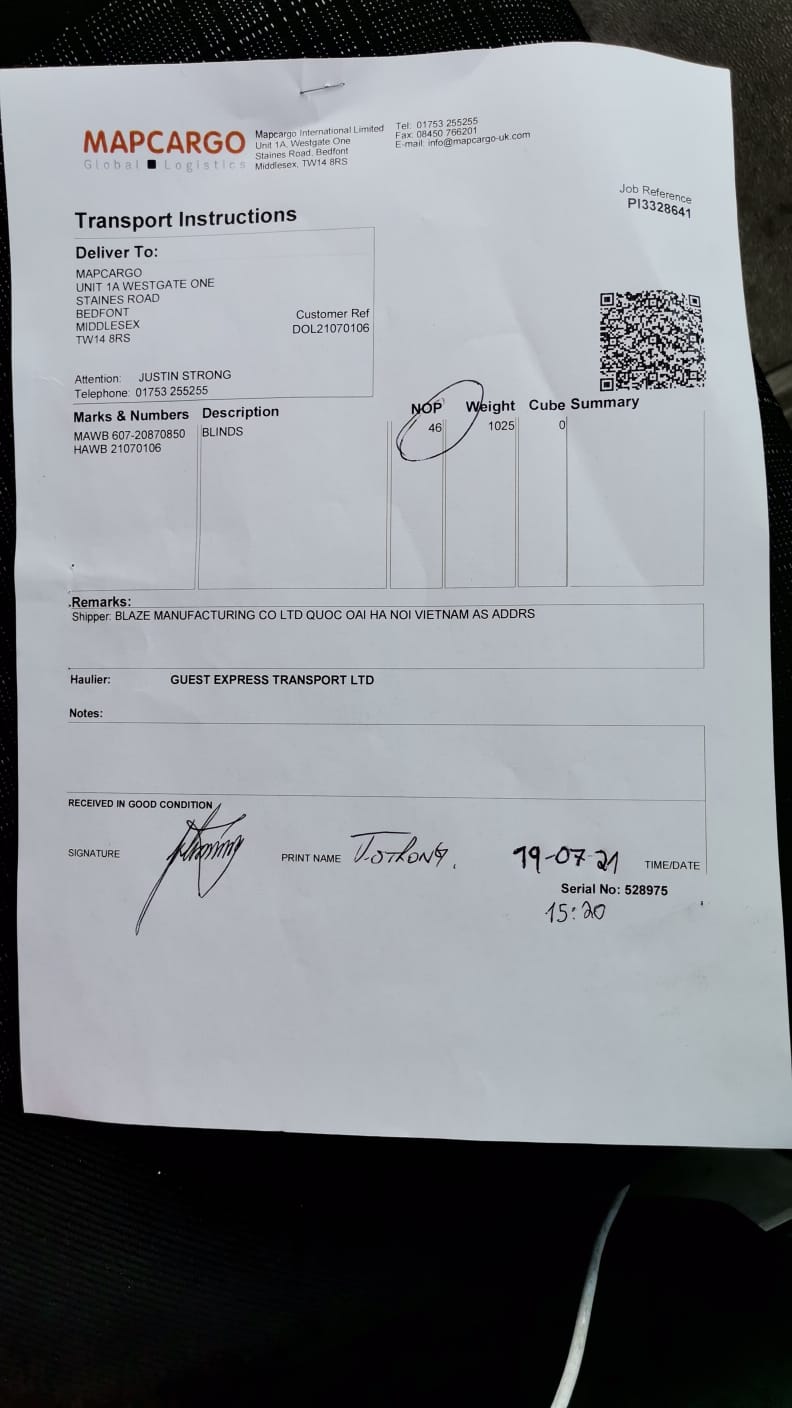 MAPCARGO
Global Logistics
Mapcargo International Limited
Unit 1A, Westgate One
Staines Road, Bedfont
Middlesex, TW14 8RS
Tel: 01753 255255
Fax: 08450 766201
E-mail: info@mapcargo-uk.com
Job Reference
PI3328641
Transport Instructions
Deliver To:
MAPCARGO
UNIT 1A WESTGATE ONE
STAINES ROAD
BEDFONT
MIDDLESEX
TW14 8RS
Customer Ref
DOL21070106
Attention: JUSTIN STRONG
Telephone: 01753 255255
Marks & Numbers Description NOP Weight Cube Summary
MAWB 607-20870850 BLINDS 46 1025 0
HAWB 21070106
Remarks:
Shipper: BLAZE MANUFACTURING CO LTD QUOC OAI HA NOI VIETNAM AS ADDRS
Haulier: GUEST EXPRESS TRANSPORT LTD
Notes:
RECEIVED IN GOOD CONDITION
SIGNATURE PRINT NAME 19-07-21 TIME/DATE
Serial No: 528975
15:20